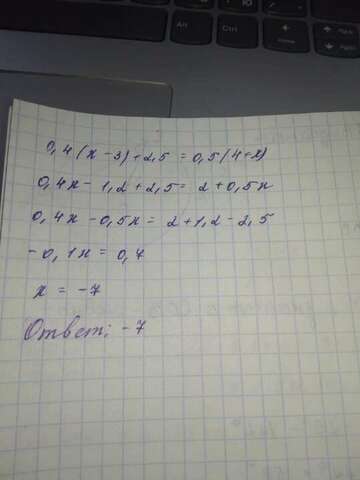 0,4(x-3)+2,5=0,5(4+x)
0,4x-1,2+2,5=2+0,5x
0,4x-0,5x=2+1,2-2,5
-0,1x=0,7
x=-7
Ответ: -7